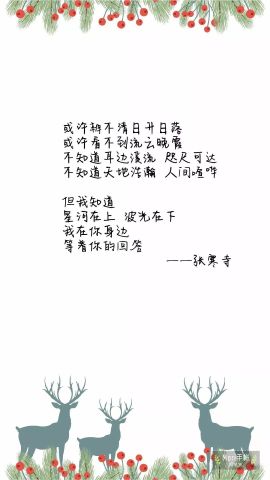 或许辨不清日升日落
或许看不到流云晚霞
不知道耳边溪流 咫尺可达
不知道天地浩瀚 人间喧哗
但我知道
星河在上 波光在下
我在你身边
等着你的回答
——张寒寺